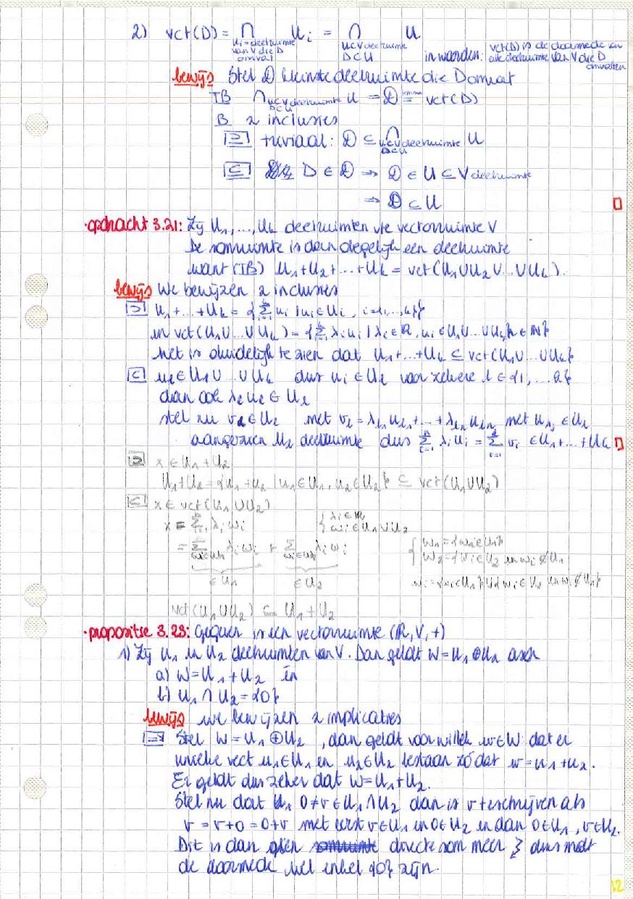 2) vct(D) = ⋂ Uᵢ = ⋂ U
Uᵢ = deelruimte van V die D omvat
U⊂V deelruimte D⊂U
in woorden: vct(D) is de doorsnede van alle deelruimten van V die D omvatten
bewijs Stel 𝔻 kleinste deelruimte die D omvat
TB ⋂ U⊂V deelruimte D⊂U U = 𝔻 = vct(D)
B 2 inclusies
⊇ triviaal: 𝔻 ⊆ ⋂ U⊂V deelruimte D⊂U U
⊆ D ∈ 𝔻 ⇒ 𝔻 ∈ U ⊆ V deelruimte
⇒ 𝔻 ⊆ U
• opdracht 3.21: Zij U₁, ..., Uₖ deelruimten v/e vectorruimte V
De somruimte is dan degelijk een deelruimte
want (TB) U₁+U₂+...+Uₖ = vct(U₁∪U₂∪...∪Uₖ).
bewijs We bewijzen 2 inclusies
⊃ U₁+...+Uₖ = {Σ uᵢ | uᵢ∈Uᵢ, i=1,...,k}
en vct(U₁∪...∪Uₖ) = {Σ λᵢuᵢ | λᵢ∈ℝ, uᵢ∈U₁∪...∪Uₖ, n∈ℕ}
Het is duidelijk te zien dat U₁+...+Uₖ ⊆ vct(U₁∪...∪Uₖ)
⊂ uᵢ∈U₁∪...∪Uₖ dus uᵢ∈Uₗ voor zekere l∈{1,...,k}
dan ook λₗuₗ∈Uₗ
stel nu vₗ∈Uₗ met
aangezien Uₗ deelruimte dus Σ λᵢuᵢ = Σ vᵢ ∈U₁+...+Uₖ
⊃ x∈U₁+U₂
U₁+U₂ = {u₁+u₂ | u₁∈U₁, u₂∈U₂} ⊆ vct(U₁∪U₂)
⊂ x∈vct(U₁∪U₂)
x = Σ λᵢwᵢ { λᵢ∈ℝ wᵢ∈U₁∪U₂
= Σ λᵢwᵢ + Σ λᵢwᵢ
∈U₁ ∈U₂
vct(U₁∪U₂) ⊆ U₁+U₂
• propositie 3.23: Gegeven is een vectorruimte (ℝ,V,+)
1) Zij U₁ en U₂ deelruimten van V. Dan geldt W=U₁⊕U₂ asa
a) W=U₁+U₂ én
b) U₁∩U₂={0}
bewijs we bewijzen 2 implicaties
⇒ Stel W=U₁⊕U₂, dan geldt voor willek w∈W dat er
unieke vect u₁∈U₁ en u₂∈U₂ bestaan zó dat w=u₁+u₂.
Er geldt dus zeker dat W=U₁+U₂.
Stel nu dat 0≠v∈U₁∩U₂ dan is v te schrijven als
v=v+0=0+v met eerst v∈U₁ en 0∈U₂ en dan 0∈U₁, v∈U₂.
Dit is dan geen directe som meer ↯ dus moet
de doorsnede wel enkel {0} zijn.
12